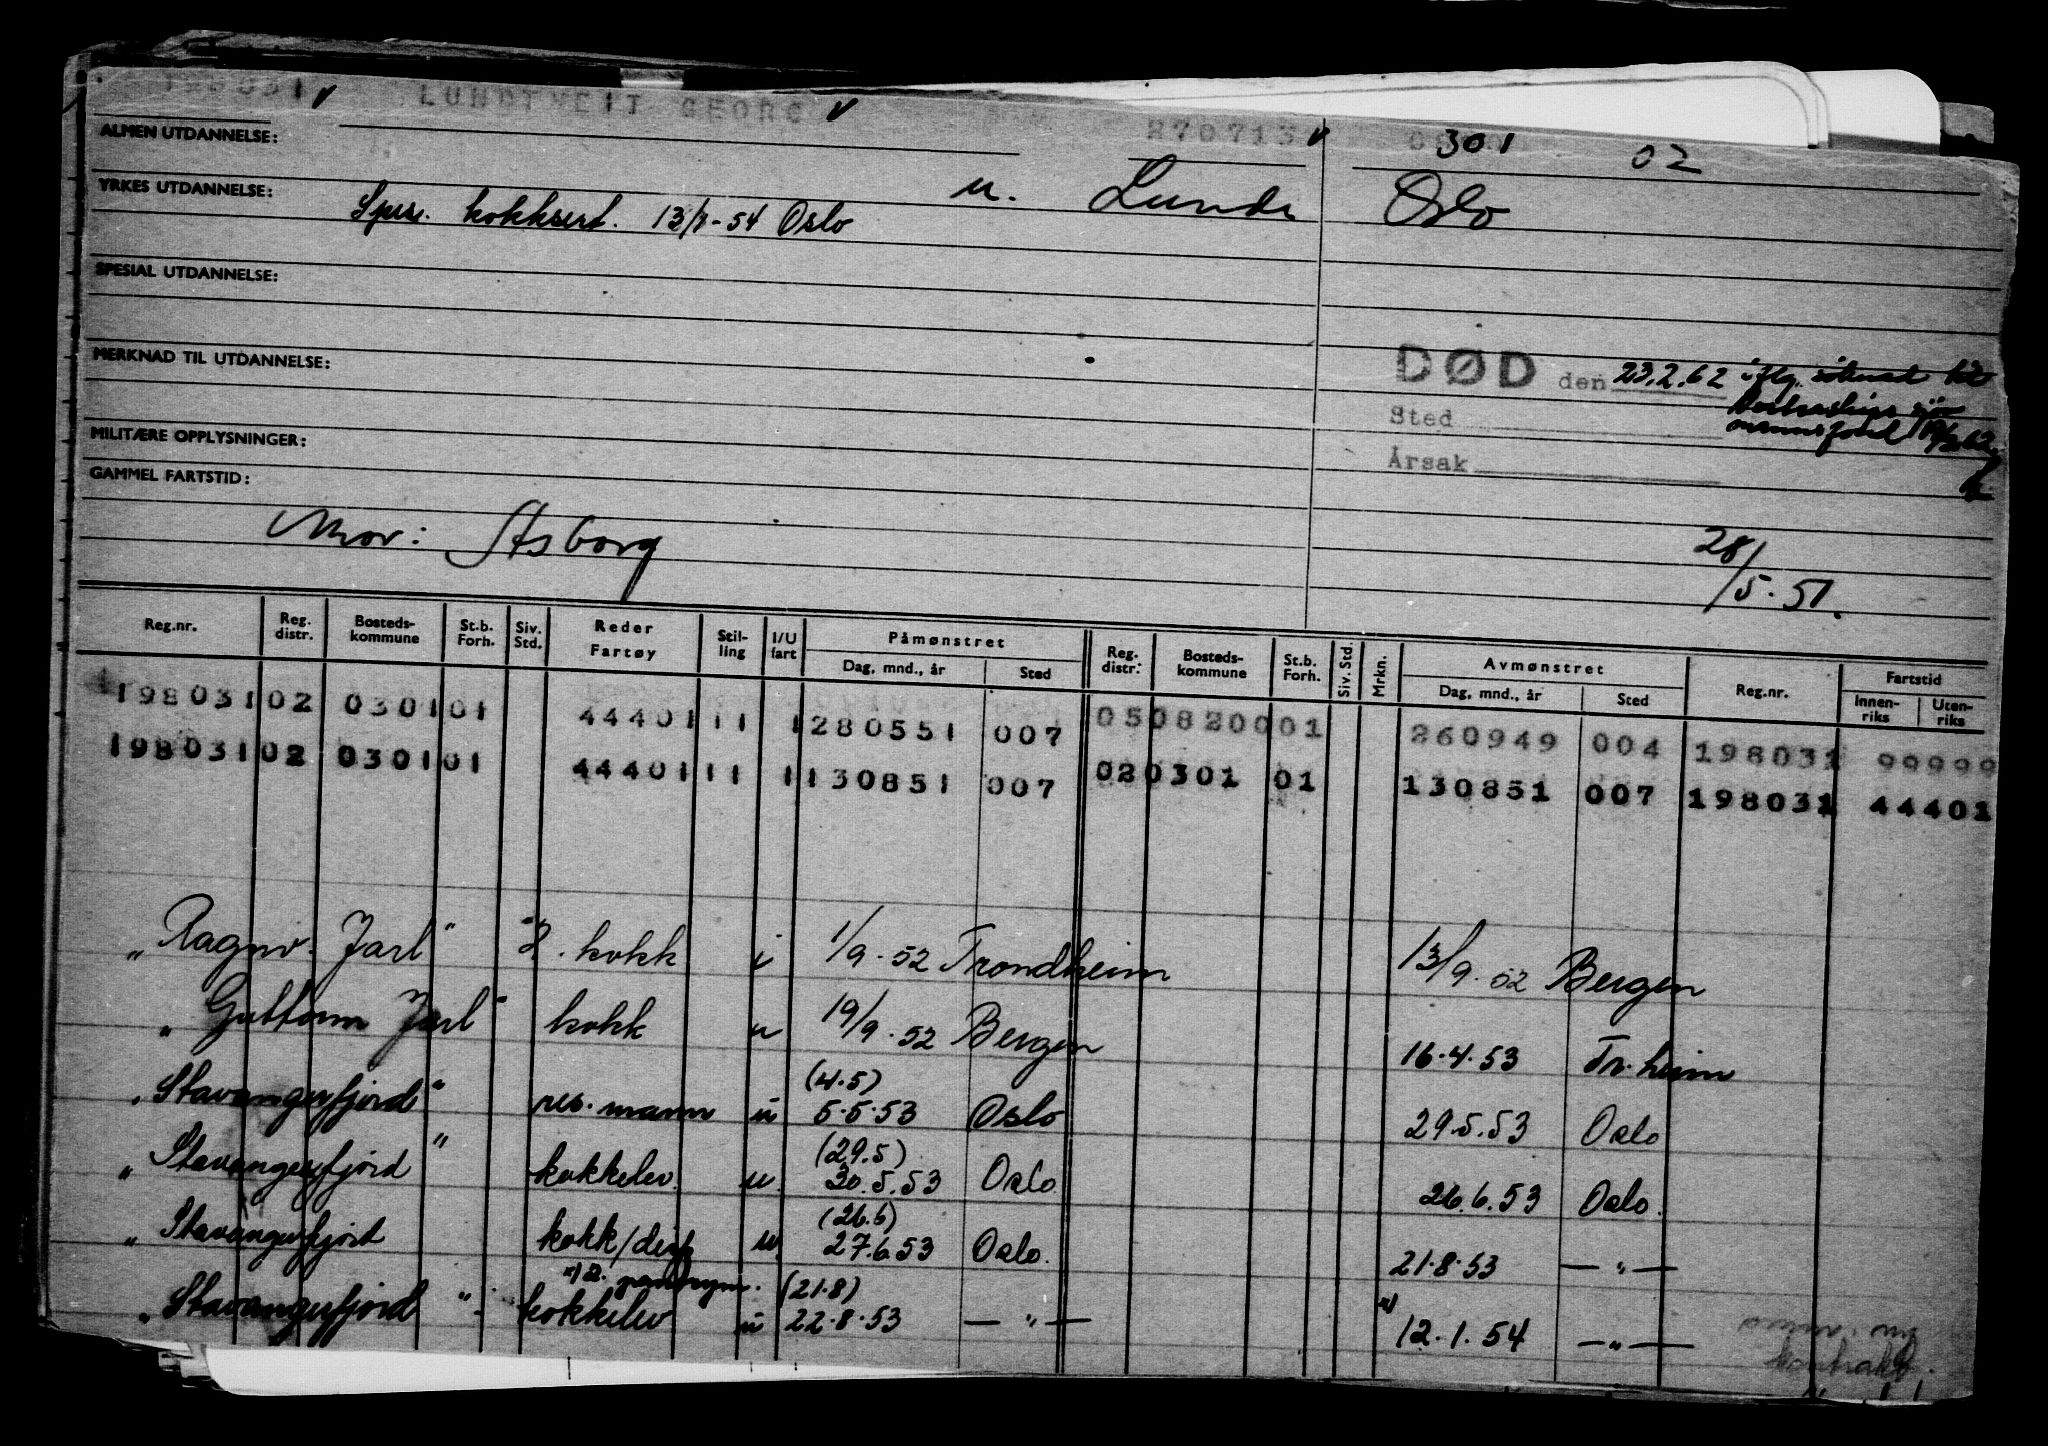 198031 LUNDTVEIT GEORG 270713 301 02
ALMEN UTDANNELSE:
YRKES UTDANNELSE: u. Lunde Oslo
Spes. kokksert. 13/1-54 Oslo
SPESIAL UTDANNELSE:
MERKNAD TIL UTDANNELSE:
DØD den 23.2.62 iflg. søknad til
Sted
MILITÆRE OPPLYSNINGER:
Årsak
GAMMEL FARTSTID:
Mor: Asborg 28/5-51.
Reg.nr. Reg. distr. Bosteds-kommune St.b. Forh. Siv. Std. Reder Fartøy Stil-ling I/U fart Påmønstret Dag, mnd., år Sted Reg. distr. Bosteds-kommune St.b. Forh. Siv. Std. Mrkn. Avmønstret Dag, mnd., år Sted Reg.nr. Fartstid Innen-riks Uten-riks
198031 02 0301 01 44401 11 1 280551 007 05 0820 001 260949 004 198031 99999
198031 02 0301 01 44401 11 1 130851 007 02 0301 01 130851 007 198031 44401
"Ragnv. Jarl" 2. kokk i 1/9-52 Trondheim 13/9-52 Bergen
"Guttorm Jarl" kokk u 19/9-52 Bergen 16-4-53 Tr.heim
(4.5)
"Stavangerfjord" res. mann u 5-5-53 Oslo 29.5.53 Oslo
(29.5)
"Stavangerfjord" kokkelev. u. 30.5.53 Oslo 26.6.53 Oslo.
(26.6)
"Stavangerfjord kokk/ u 27.6.53 Oslo. 21-8-53 — " —
x) 2. (21.8)
"Stavangerfjord" kokkelev u 22-8-53 — " — x) 12.1.54 — " —
kontrakt.